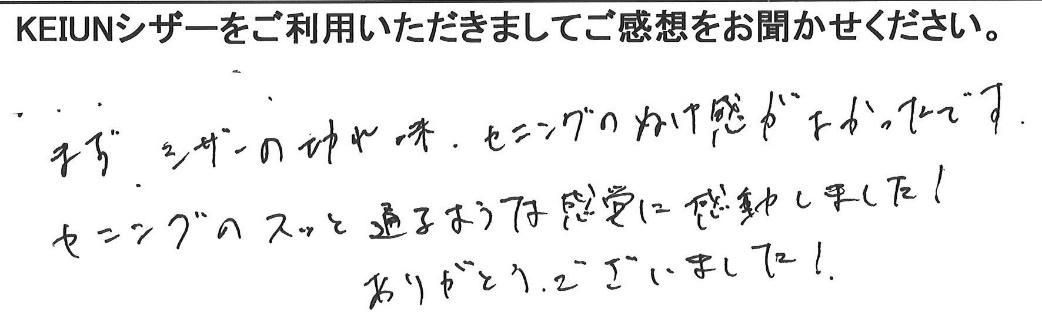 KEIUNシザーをご利用いただきましてご感想をお聞かせください。
まず、シザーの切れ味、セニングのぬけ感がよかったです。
セニングのスッと通るような感覚に感動しました！
ありがとうございました！